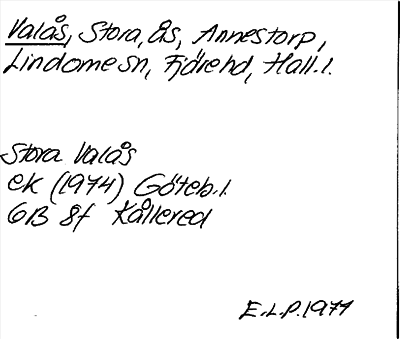 Valås, Stora, ås, Annestorp,
Lindome sn, Fjäre hd, Hall.l.
Stora Valås
ek (1974) Göteb.l.
6B 8f Kållered
E.L.P. 1977